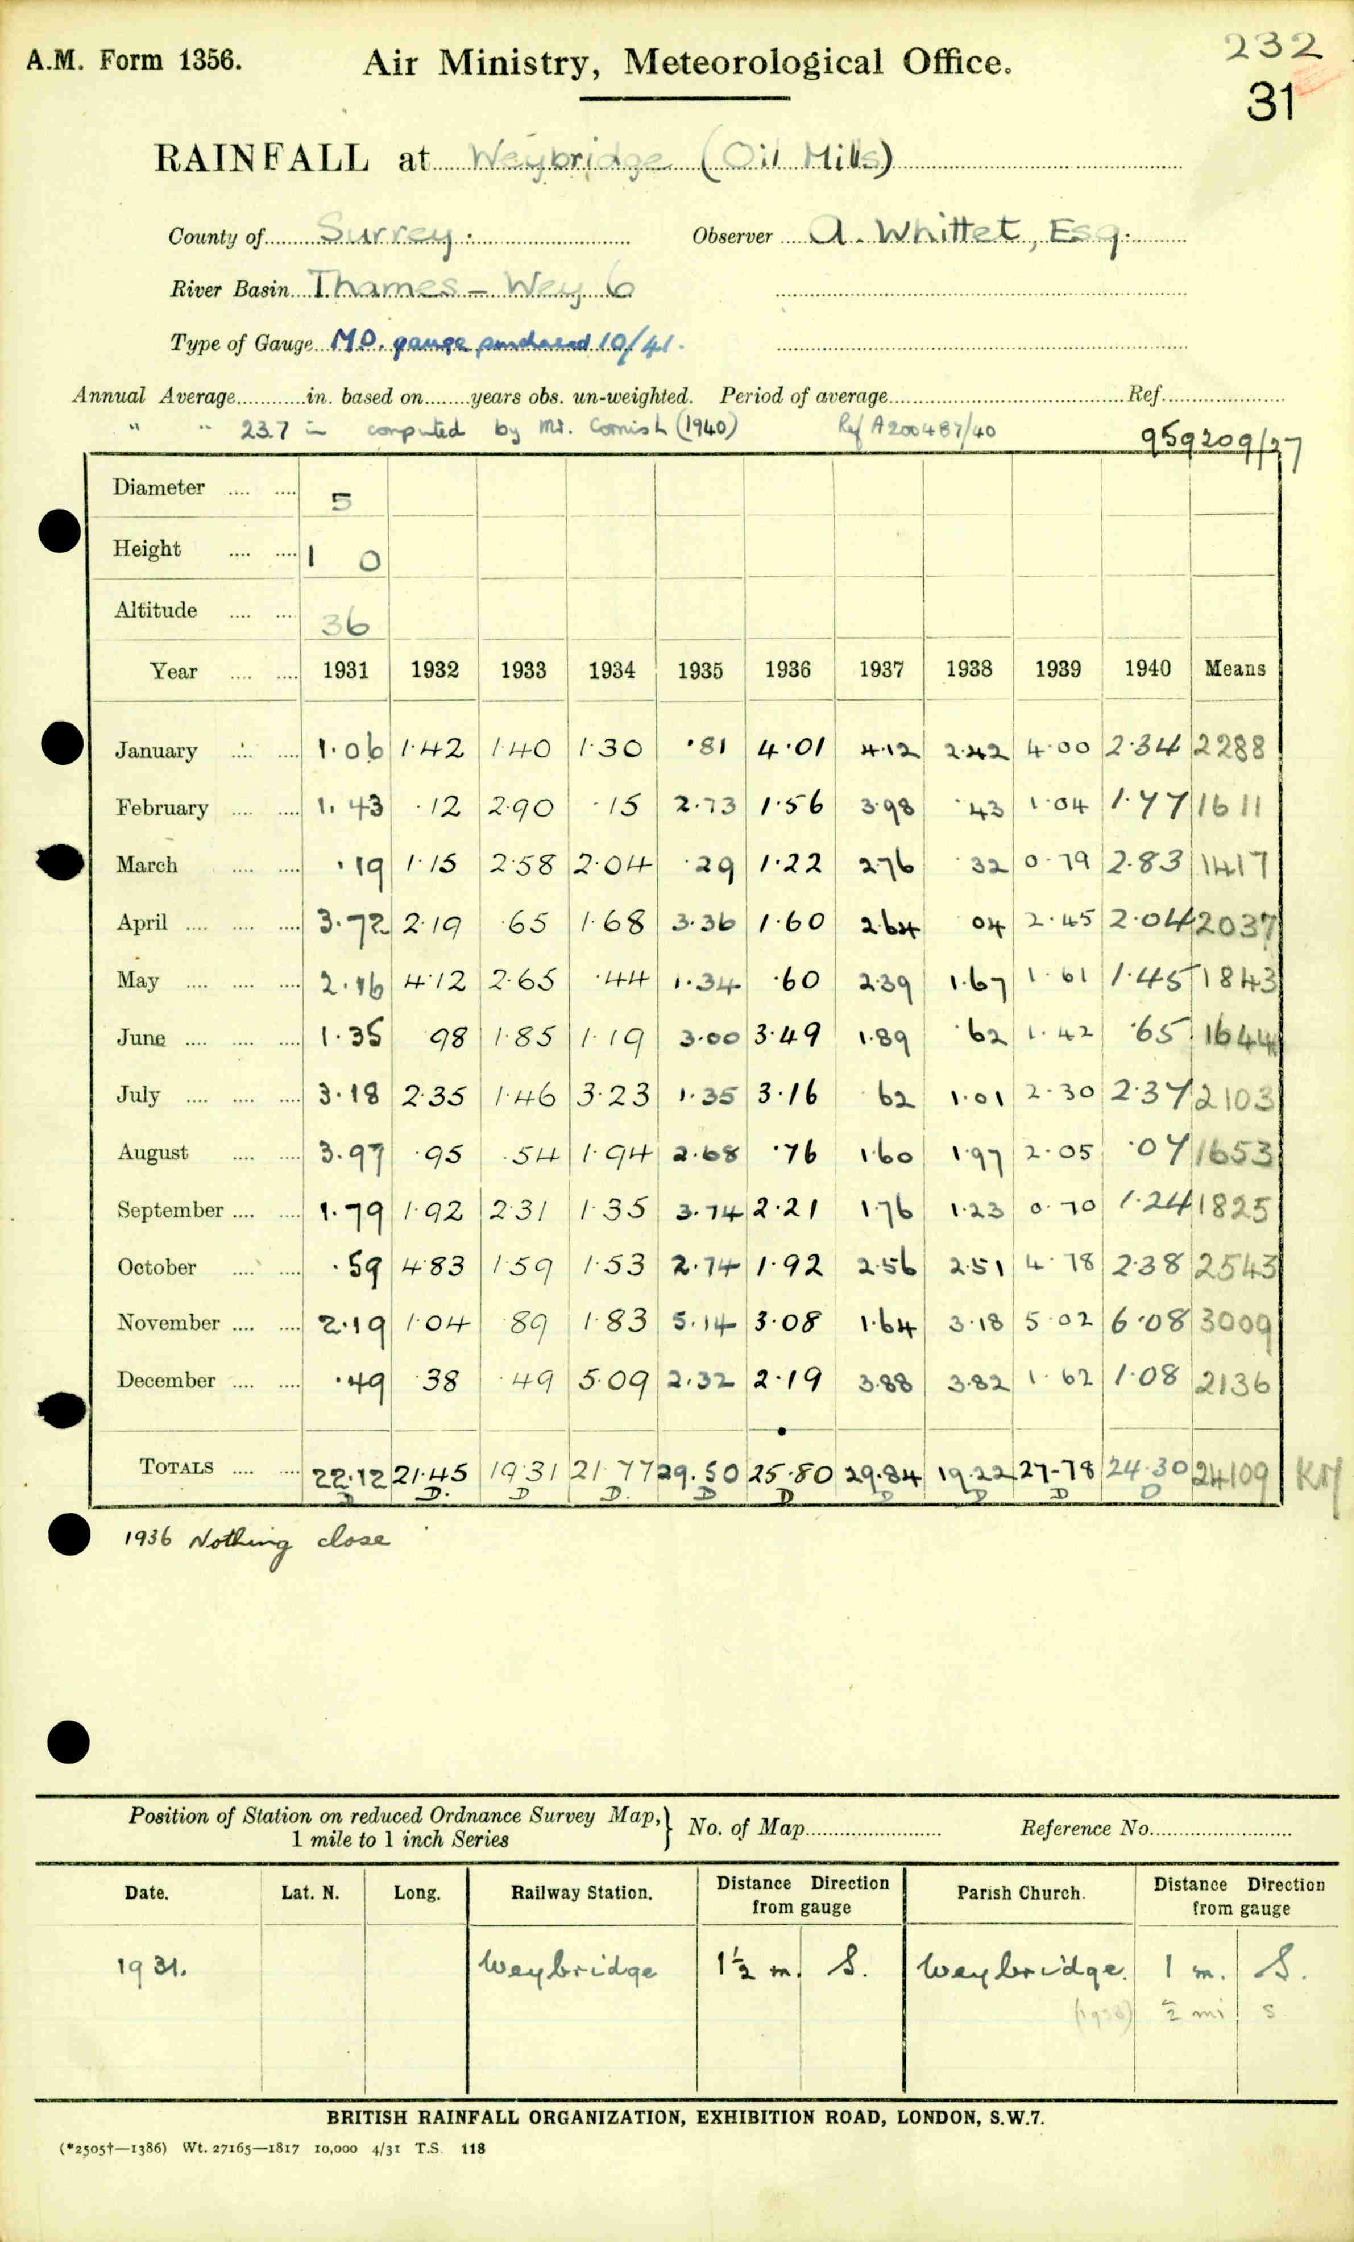 A.M. Form 1356.
Air Ministry, Meteorological Office.
232
31
RAINFALL at Weybridge (Oil Mills)
County of Surrey. Observer A. Whittet, Esq.
River Basin Thames - Wey 6
Type of Gauge M.O. gauge purchased 10/41.
Annual Average in. based on years obs. un-weighted. Period of average Ref.
" " 23.7 in computed by Mr. Cornish (1940) Ref A200487/40
959209/27
Diameter 5
Height 1 0
Altitude 36
Year 1931 1932 1933 1934 1935 1936 1937 1938 1939 1940 Means
January 1.06 1.42 1.40 1.30 .81 4.01 4.12 2.42 4.00 2.34 2288
February 1.43 .12 2.90 .15 2.73 1.56 3.98 .43 1.04 1.77 1611
March .19 1.15 2.58 2.04 .29 1.22 2.76 .32 0.79 2.83 1417
April 3.72 2.19 .65 1.68 3.36 1.60 2.64 04 2.45 2.04 2037
May 2.16 4.12 2.65 .44 1.34 .60 2.39 1.67 1.61 1.45 1843
June 1.35 98 1.85 1.19 3.00 3.49 1.89 .62 1.42 .65 1644
July 3.18 2.35 1.46 3.23 1.35 3.16 62 1.01 2.30 2.37 2103
August 3.97 .95 .54 1.94 2.68 .76 1.60 1.97 2.05 .07 1653
September 1.79 1.92 2.31 1.35 3.74 2.21 1.76 1.23 0.70 1.24 1825
October .59 4.83 1.59 1.53 2.74 1.92 2.56 2.51 4.78 2.38 2543
November 2.19 1.04 89 1.83 5.14 3.08 1.64 3.18 5.02 6.08 3009
December .49 .38 .49 5.09 2.32 2.19 3.88 3.82 1.62 1.08 2136
TOTALS 22.12 21.45 19.31 21.77 29.50 25.80 29.84 19.22 27.78 24.30 24109
D D. D D. D D D D D D
1936 Nothing close
Position of Station on reduced Ordnance Survey Map,} No. of Map Reference No.
1 mile to 1 inch Series
Date. Lat. N. Long. Railway Station. Distance Direction from gauge Parish Church. Distance Direction from gauge
1931. Weybridge 1½ m. S. Weybridge. 1 m. S.
(1938) ½ mi S
BRITISH RAINFALL ORGANIZATION, EXHIBITION ROAD, LONDON, S.W.7.
(*2505†—1386) Wt. 27165—1817 10,000 4/31 T.S. 118